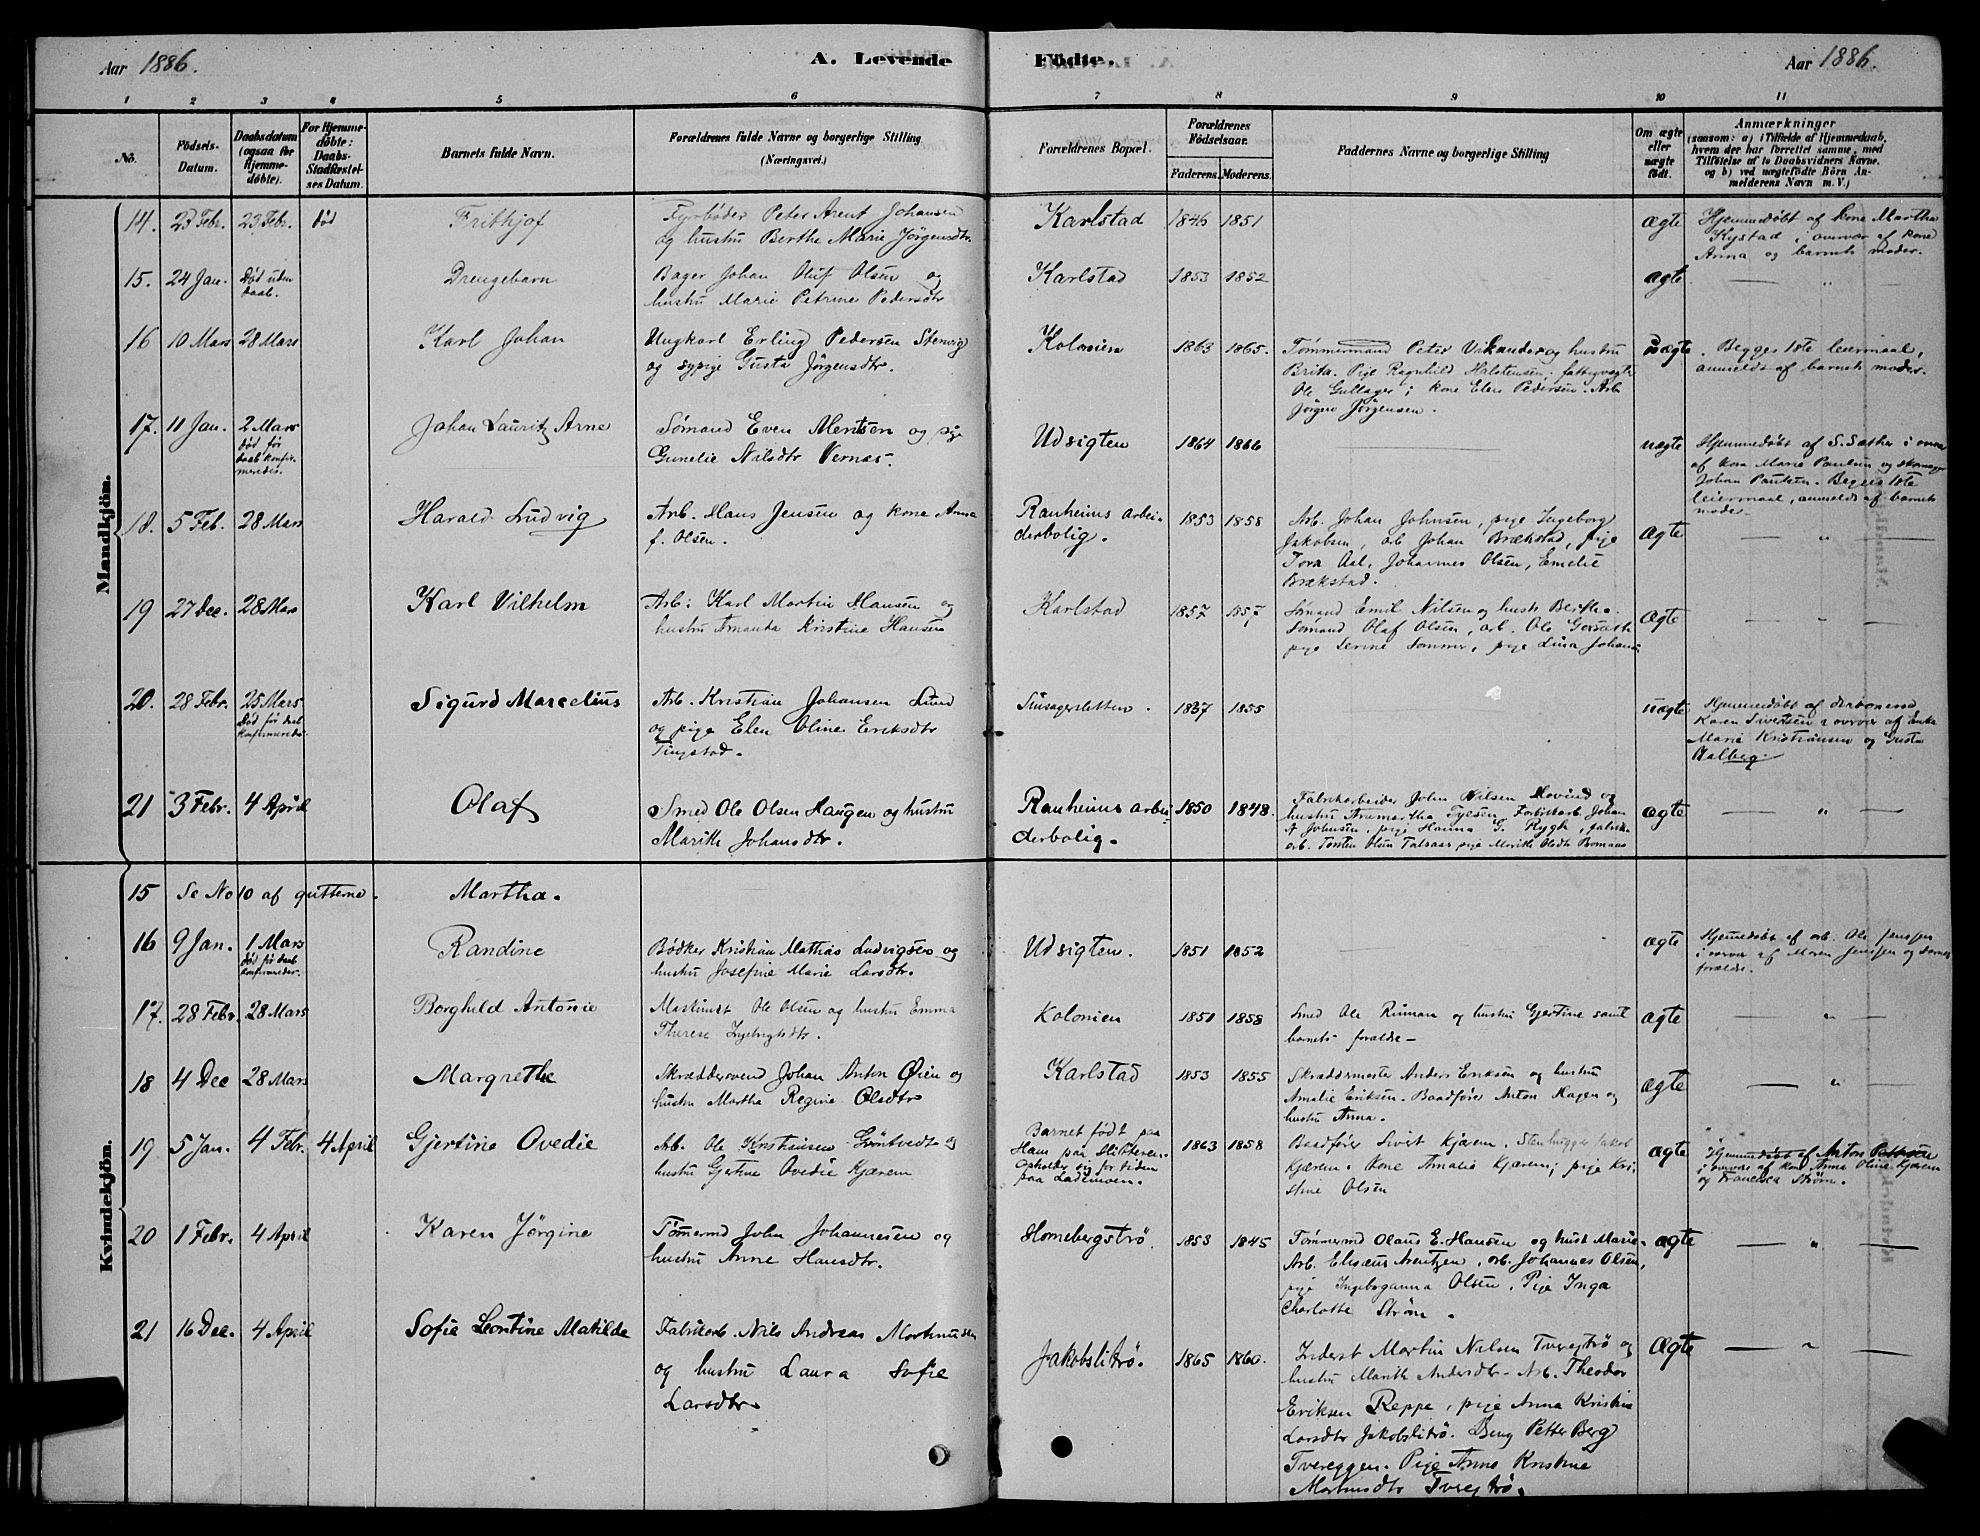 Aar 1886.
A. Levende Födte.
Aar 1886.
1 2 3 4 5 6 7 8 9 10 11
No.
Födsels-
Datum.
Daabsdatum
(ogsaa for
Hjemme-
döbte).
For Hjemme-
döbte:
Daabs-
Stadfæstel-
ses Datum.
Barnets fulde Navn.
Forældrenes fulde Navne og borgerlige Stilling
(Næringsvei.)
Forældrenes Bopæl.
Forældrenes
Födselsaar.
Faderens. Moderens.
Faddernes Navne og borgerlige Stilling
Om ægte
eller
uægte
födt.
Anmærkninger
(saasom: a) i Tilfælde af Hjemmedaab,
hvem der har forrettet samme, med
Tilföielse af to Daabsvidners Navne,
og b) ved uægtefödte Börn An-
melderens Navn m. V.)
Mandkjön.
14. 23 Febr. 23 Febr. død Frithjof
Fyrbøder Peter Arent Johansen
og hustru Berthe Marie Jörgensdtr.
Karlstad 1846 1851 ægte
Hjemmedøbt af kone Martha
Rystad i overvær af kone
Anna og barnets moder.
15. 24 Jan. Død uden
daab.
Drengebarn
Bager Johan Oluf Olsen og
hustru Marie Petrine Pedersdtr
Karlstad 1853 1852 ægte — " —
16 10 Mars 28 Mars Karl Johan
Ungkarl Erling Pedersen Stenvig
og sypige Gusta Jörgensdtr.
Kolonien 1863 1865.
Tømmermand Peter Vikander og hustru
Brita. Pige Ragnhild Halstensen, fattigvogt
Ole Gullager; kone Elen Pedersen. Arb.
Jörgen Jörgensen.
uægte. Begges 1ste leiermaal,
anmeldt af barnets moder.
17. 11 Jan. 2 Mars
død før
daab konfir-
meredes.
Johan Lauritz Arne
Sømand Even Mentsen og pige
Gunelie Nilsdtr Vernæs.
Udsigten 1864 1866 uægte
Hjemmedøbt af S. Sæther i overv.
af kone Marie Paulsen og skomager
Johan Paulsen. Begges 1ste
leiermaal, anmeldt af barnets
moder.
18. 5 Feb. 28 Mars Harald Ludvig
Arb. Hans Jensen og kone Anna
f. Olsen.
Ranheims arbei-
derbolig.
1853 1858
Arb. Johan Johnsen, pige Ingeborg
Jakobsen, arb Johan Brækstad, pige
Tora Aal, Johannes Olsen, Emelie
Brækstad.
ægte — " —
19 27 Dec. 28 Mars Karl Vilhelm
Arb: Karl Martin Hansen og
hustru Amanda Kristine Hansen
Karlstad 1857 1857
Sømand Emil Nilsen og hustr Berthe.
Sømand Olaf Olsen, arb. Ole
pige Serine Sommer, pige Lina Johans
ægte — " —
20. 28 Febr. 25 Mars
Død før daab
konfirmeredes.
Sigurd Marcelius
Arb. Kristian Johansen Lund
og pige Elen Oline Eriksdtr
Tingstad.
1837 1855 uægte
Hjemmedøbt af
Karen Sivertsen i overvær af Enke
Marie Kristiansen og Gusta
Aalberg.
21 3 Febr. 4 April Olaf
Smed Ole Olsen Haugen og hustru
Marith Johansdtr.
Ranheims arbei-
derbolig.
1850 1848.
Fabrikarbeider John Nilsen Hovind og
hustru Annamartha Fabrikarb. Johan
A Johnsen, pige Hanna G. Rygh, fabrik-
arb. Olsen pige Marith Olsdtr
ægte — " —
Kvindekjön.
15 Se No 10 af gutterne. Martha.
16 9 Jan. 1 Mars
død før daab
konfirmeredes.
Randine
Bødker Kristian Mathias Ludvigsen og
hustru Josefine Marie Larsdtr.
Udsigten. 1851 1852 ægte
Hjemmedøbt af arb. Ole Jenssen
i overvær af Maren Jenssen og barnets
forældre.
17. 28 Febr. 28 Mars Borghild Antonie
Maskinist Ole Olsen og hustru Emma
Therese Ingebrigtsdtr.
Kolonien 1851 1858
Smed Ole Rinnan og hustru Gjertine samt
barnets forældre —
ægte — " —
18 4 Dec 28 Mars Margrethe
Skræddersvend Johan Anton Øien og
hustru Martha Regine Olsdtr
Karlstad 1853 1855
Skræddermester Anders Eriksen og hustru
Amalie Eriksen. Baadfører Anton Hagen og
hustru Anna.
ægte — " —
19 5 Jan. 4 Febr. 4 April Gjertine Ovedie
Arb. Ole Kristiansen Grøntvedt og
hustru Gjertine Ovedie Kjærem
Barnet født paa
Ham paa Hitteren.
Opholder sig for tiden
paa Lademoen.
1863 1858
Baadfører Sivert Kjærem. Stenhugger Jakob
Kjærem. Kone Amalie Kjærem; pige Kri-
stine Olsen
ægte
Hjemmedøbt af Anton Pettersen
i overvær af kone Anna Oline Kjærem
og Francisca Strøm.
20 1 Febr. 4 April Karen Jörgine
Tømermd John Johannesen og
hustru Anne Hansdtr.
Hornebergstrø 1853 1845
Tømmermd Olaus E. Hansen og hust Marie.
Arb. Elisæus Arentzen, arb. Johannes Olsen,
pige Ingeboganna Olsen. Pige Inga
Charlotte Strøm.
ægte — " —
21 16 Dec. 4 April Sofie Leontine Matilde
Fabrikarb. Nils Andreas Martinussen
og hustru Laura Sofie
Larsdtr.
Jakobslitrø. 1865 1860.
Inderst Martin Nilsen Tveregtrø og
hustru Marith Andersdtr. Arb. Theodor
Eriksen Reppe, pige Anna Kristine
Larsdtr Jakobslitrø. Petter Berg
Tvereggen. Pige Anne Kristine
Martinusdtr
ægte — " —